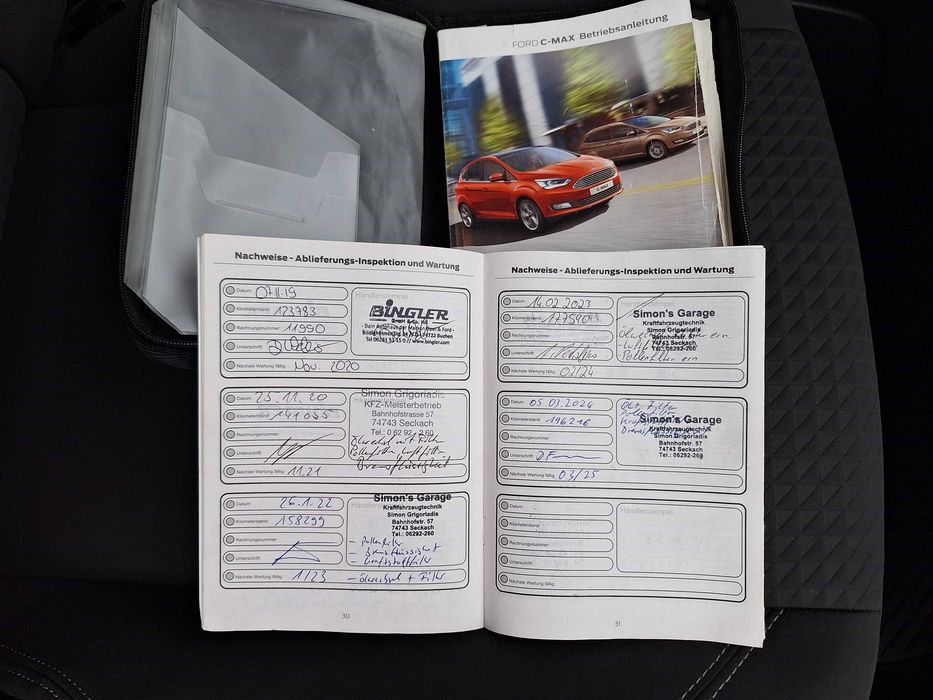 FORD C-MAX Betriebsanleitung
C-MAX
Nachweise - Ablieferungs-Inspektion und Wartung
Datum: 07.11.19
Händlerstempel
Kilometerstand: 123783
BINGLER
GmbH & Co. KG
- Dein Autohaus der Marken Opel & Ford -
74722 Buchen
Tel 06281 52 11 0 // www.bingler.com
Rechnungsnummer: 11990
Unterschrift:
Nächste Wartung fällig: Nov. 2020
Datum: 23.11.20
Simon Grigoriadis
KFZ-Meisterbetrieb
Bahnhofstrasse 57
74743 Seckach
Tel.: 0 62 92 - 2 60
Kilometerstand: 141055
Rechnungsnummer:
Ölwechsel mit Filter
Pollenfilter, Luftfilter
Bremsflüssigkeit
Unterschrift:
Nächste Wartung fällig: 11.21
Datum: 26.1.22
Simon's Garage
Kraftfahrzeugtechnik
Simon Grigoriadis
Bahnhofstr. 57
74743 Seckach
Tel.: 06292-260
Kilometerstand: 158299
Rechnungsnummer:
- Pollenfilter
- Bremsflüssigkeit
- Kraftstofffilter
- Ölwechsel + Filter
Unterschrift:
Nächste Wartung fällig: 1/23
30
Nachweise - Ablieferungs-Inspektion und Wartung
Datum: 14.02.2023
Händlerstempel
Simon's Garage
Kraftfahrzeugtechnik
74743 Seckach
Tel.: 06292-260
Kilometerstand: 177590
Rechnungsnummer:
Pollenfilter ern.
Unterschrift:
Nächste Wartung fällig: 02/24
Datum: 05.03.2024
Simon's Garage
Kraftfahrzeugtechnik
Simon Grigoriadis
Bahnhofstr. 57
74743 Seckach
Tel.: 06292-260
Kilometerstand: 196216
Rechnungsnummer:
Unterschrift:
Nächste Wartung fällig: 03/25
Datum:
Händlerstempel
Kilometerstand:
Rechnungsnummer:
Unterschrift:
Nächste Wartung fällig:
31